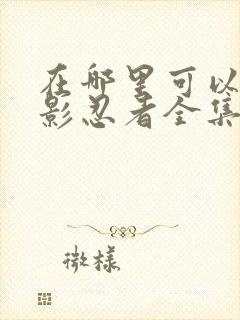 在哪里可以
影忍者全集
微样